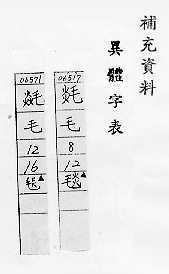 補充資料
異體字表
06517
毯
毛
8
12
毯▲
06571
毯
毛
12
16